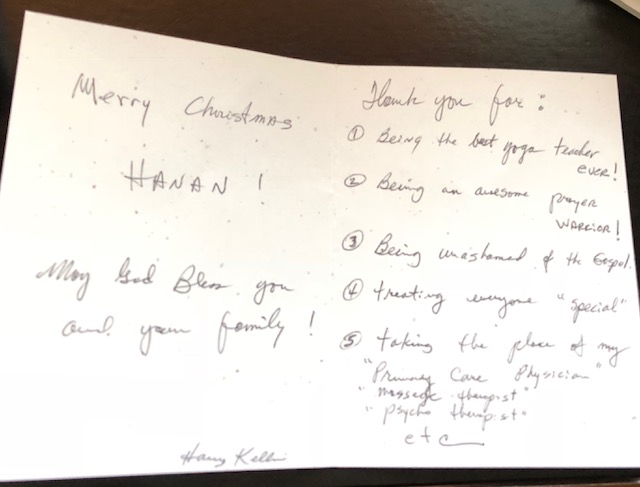 Merry Christmas
HANAN !
May God Bless you
and your family !
Thank you for :
① Being the best yoga teacher
ever!
② Being an awesome prayer
WARRIOR!
③ Being unashamed of the Gospel
④ treating everyone "special"
⑤ taking the place of my
"Primary Care Physician"
"massage therapist"
"psycho therapist"
etc